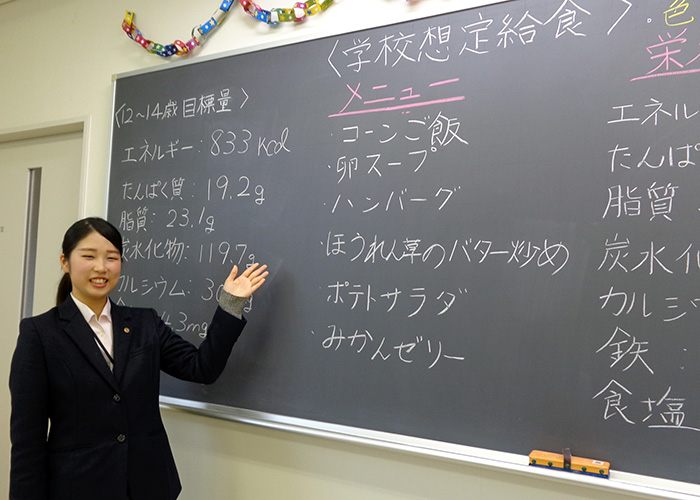 〈12～14歳目標量〉
エネルギー：833kcal
たんぱく質：19.2g
脂質：23.1g
炭水化物：119.7g
カルシウム：
4.3mg
〈学校想定給食〉
メニュー
・コーンご飯
・卵スープ
・ハンバーグ
・ほうれん草のバター炒め
・ポテトサラダ
・みかんゼリー
・色
栄
エネル
たんぱ
脂質
炭水化
カルシ
鉄：
食塩